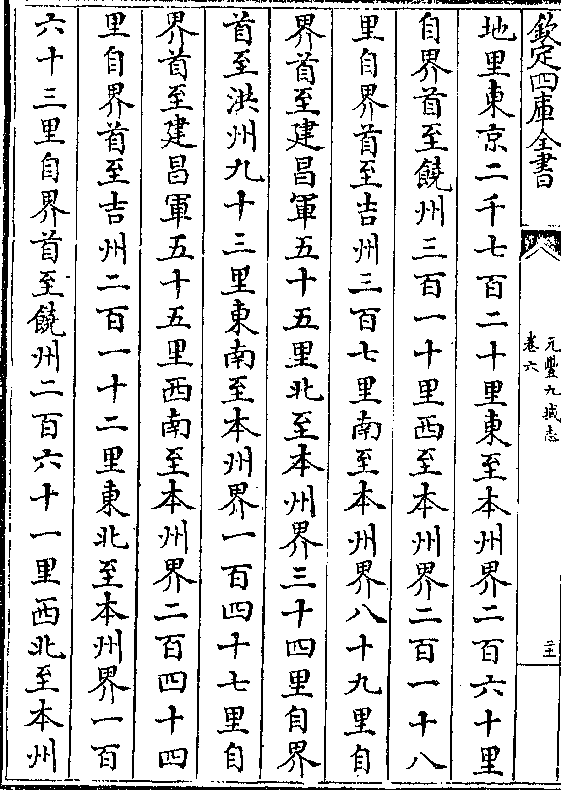 欽定四庫全書
元豐九域志
卷六
地里東京二千七百二十里東至本州界二百六十里
自界首至饒州三百一十里西至本州界二百一十八
里自界首至吉州三百七里南至本州界八十九里自
界首至建昌軍五十五里北至本州界三十四里自界
首至洪州九十三里東南至本州界一百四十七里自
界首至建昌軍五十五里西南至本州界二百四十四
里自界首至吉州二百一十二里東北至本州界一百
六十三里自界首至饒州二百六十一里西北至本州